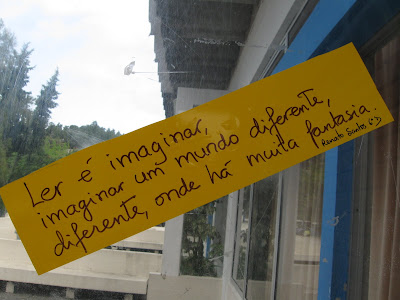 Ler é imaginar,
imaginar um mundo diferente,
diferente, onde há muita fantasia.
Renato Santos 6ºD